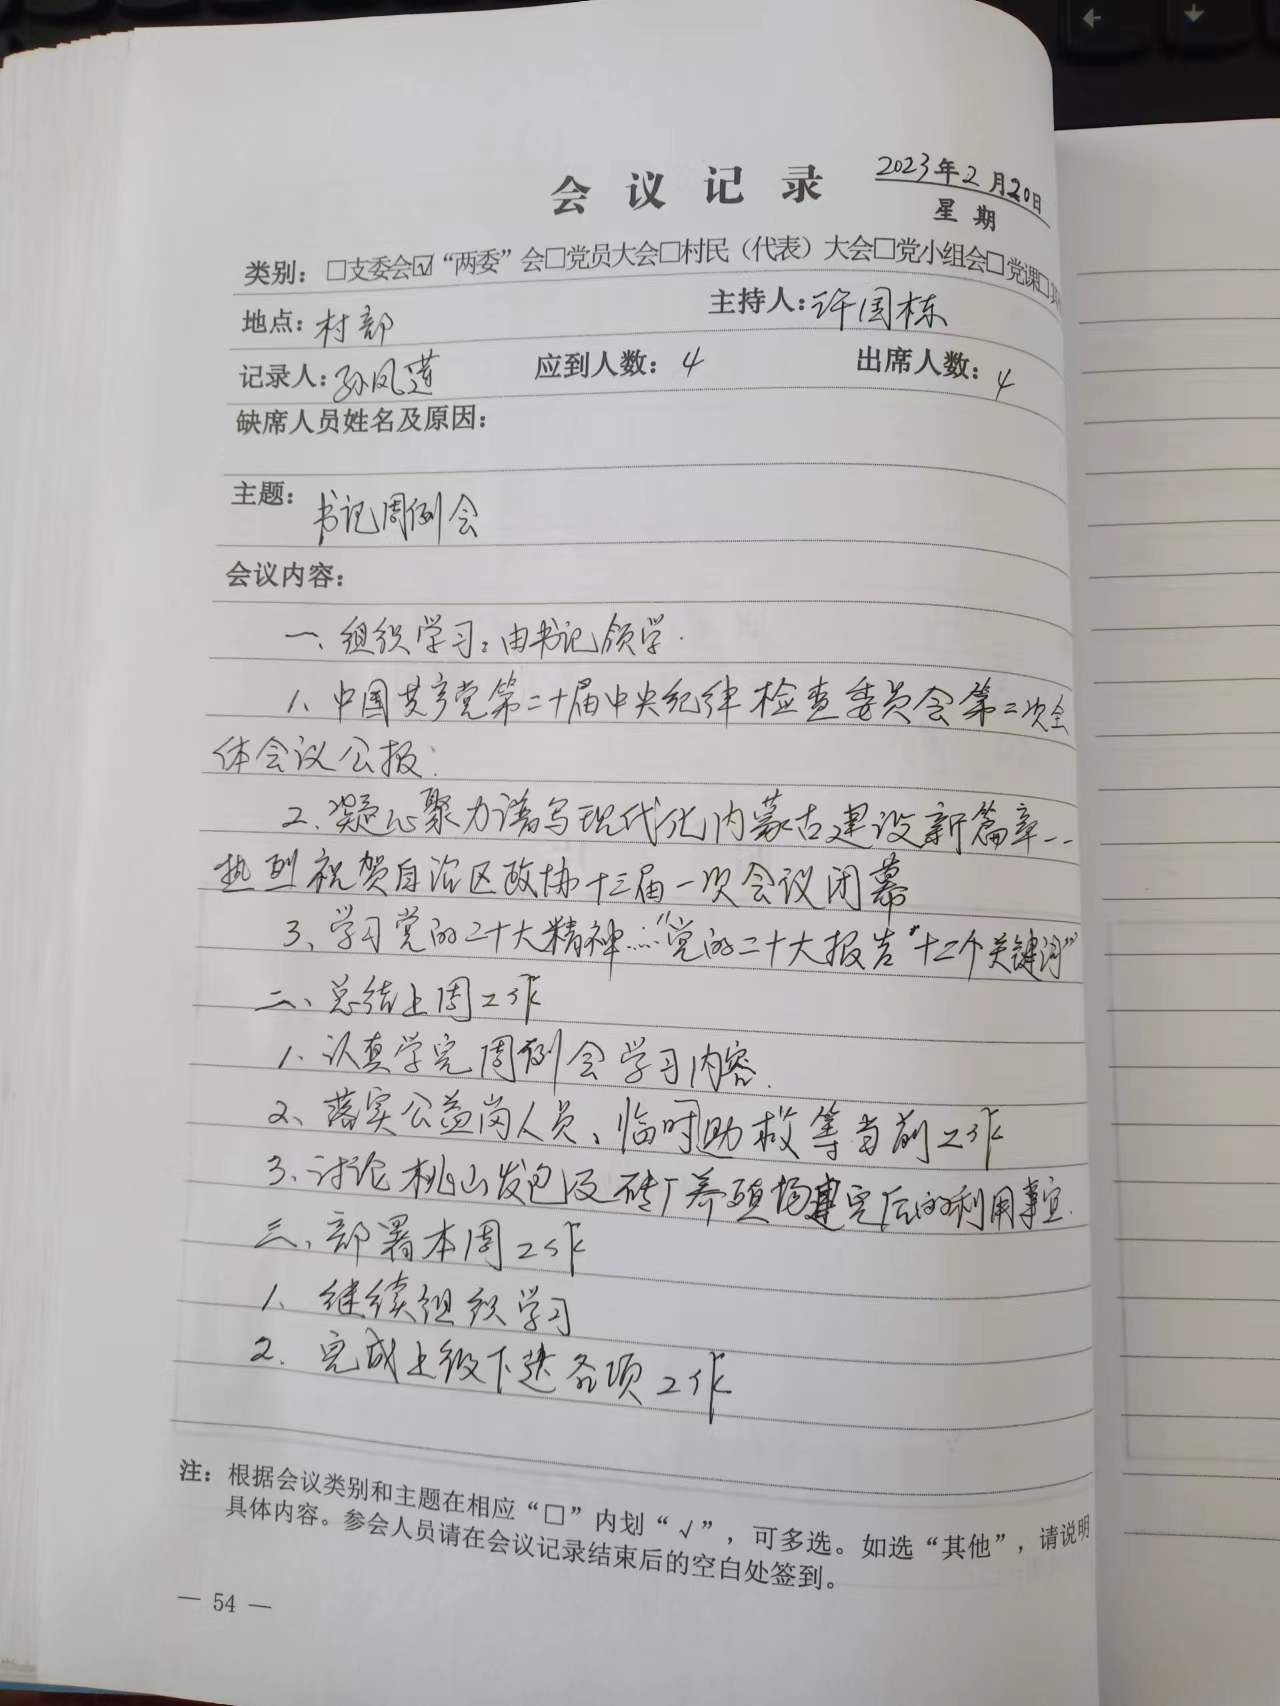 会议记录
2023年2月20日
星期
类别：□支委会☑“两委”会□党员大会□村民（代表）大会□党小组会□党课□
地点：村部 主持人：许国栋
记录人：孙凤莲 应到人数：4 出席人数：4
缺席人员姓名及原因：
主题：书记周例会
会议内容：
一、组织学习：由书记领学.
1、中国共产党第二十届中央纪律检查委员会第二次全
体会议公报：
2、凝心聚力谱写现代化内蒙古建设新篇章--
热烈祝贺自治区政协十三届一次会议闭幕
3、学习党的二十大精神……“党的二十大报告“十二个关键词””
二、总结上周工作
1、认真学完周例会学习内容.
2、落实公益岗人员、临时助救等当前工作
3、讨论桃山发包及砖厂养殖场建完后的利用事宜.
三、部署本周工作
1、继续组织学习
2、完成上级下达各项工作
注：根据会议类别和主题在相应“□”内划“√”，可多选。如选“其他”，请说明
具体内容。参会人员请在会议记录结束后的空白处签到。
— 54 —